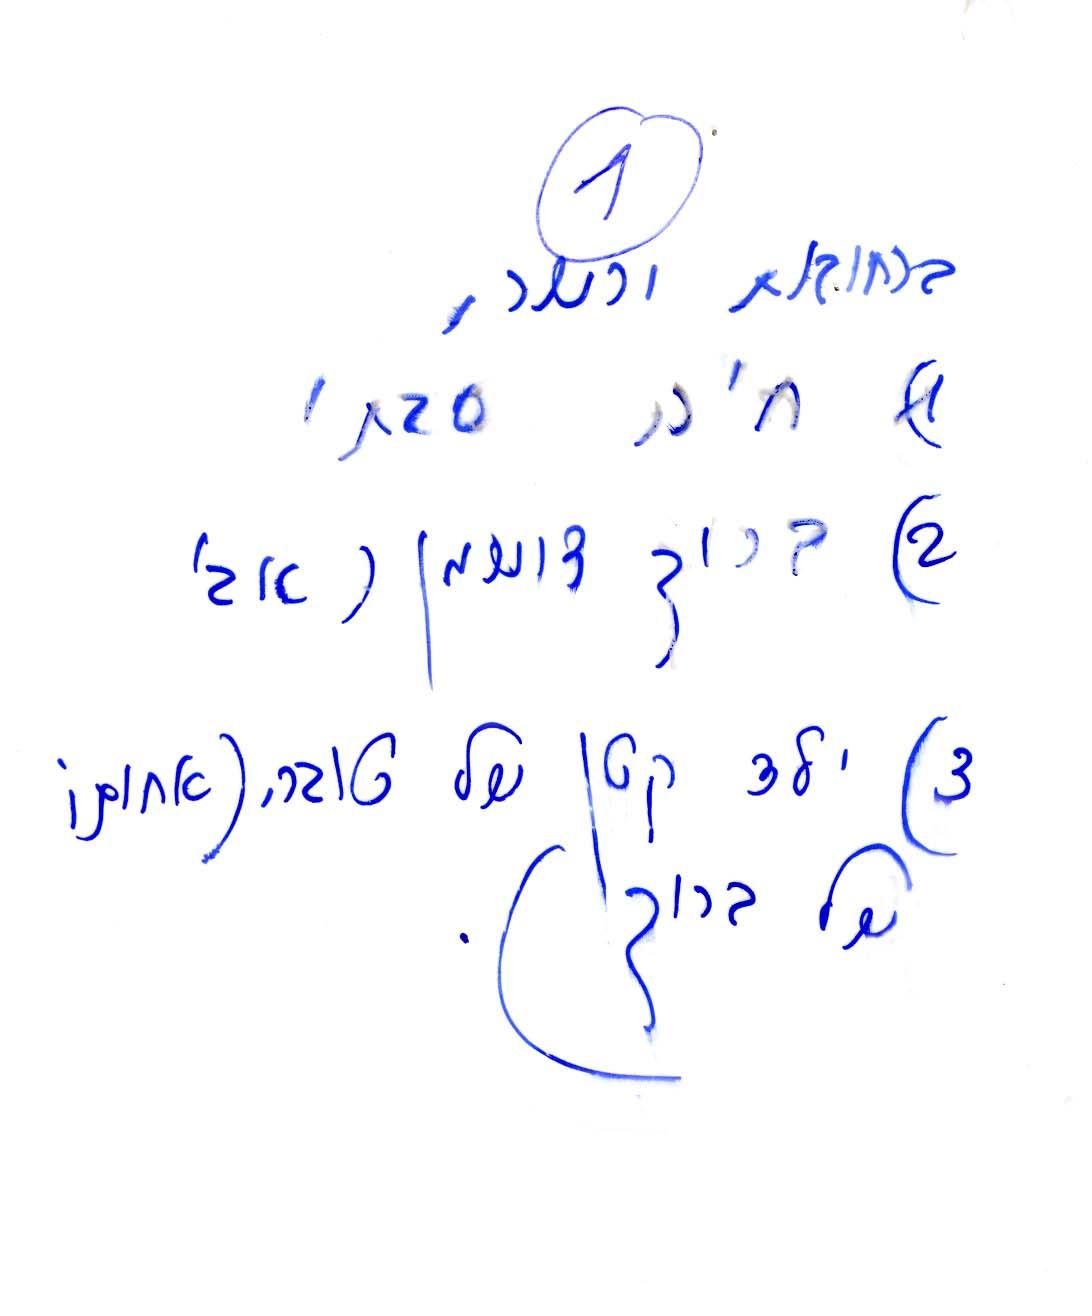 1
ברחובות ורשה,
1) חיה סבתי
2) ברוך דושמן (אבי
3) ילד קטן של טובה, (אחותו
של ברוך).